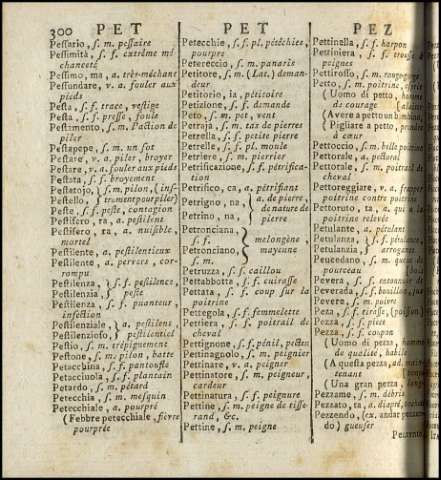 300 PET PET PEZ
Pessario, s. m. pessaire
Pessimità, s. f. extrême mé
chanceté
Pessimo, ma, a. très-méchant
Pessundare, v. a. fouler aux
pieds
Pesta, s. f. trace, vestige
Pesta, s. f. presse, foule
Pestamento, s. m. l'action de
piler
Pestapepe, s. m. un sot
Pestare, v. a. piler, broyer
Pestare, v. a. fouler aux pieds
Pestata, s. f. broyement
Pestatojo, s. m. pilon, (ins-
Pestello, trument pour piler)
Peste, s. f. peste, contagion
Pestifero, ra, a. pestilent
Pestifero, ra, a. nuisible,
mortel
Pestilente, a. pestilentieux
Pestilente, a. pervers, cor-
rompu
Pestilenza, s. f. pestilence,
Pestilenzia, peste
Pestilenza, s. f. puanteur,
infection
Pestilenziale, a. pestilent,
Pestilenzioso, pestilentiel
Pestio, s. m. trépignement
Pestone, s. m. pilon, batte
Petacchina, s. f. pantoufle
Petacciuola, s. f. plantain
Petardo, s. m. pétard
Petecchia, s. m. mesquin
Petecchiale, a. pourpré
(Febbre petecchiale, fièvre
pourprée
Petecchie, s. f. pl. pétéchies,
pourpre
Petereccio, s. m. panaris
Petitore, s. m. (Lat.) deman-
deur
Petitorio, la pétitoire
Petizione, s. f. demande
Peto, s. m. pet, vent
Petraja, s. m. tas de pierres
Petrella, s. f. petite pierre
Petrelle, s. f. pl. moule
Petriere, s. m. pierrier
Petrificazione, s. f. pétrifica-
tion
Petrifico, ca, a. pétrifiant
Petrigno, na, a. de pierre,
de nature de
Petrino, na, pierre
Petronciana,
s. f. melongène,
Petronciano, mayenne
s. m.
Petruzza, s. f. caillou
Pettabbotta, s. f. cuirasse
Pettata, s. f. coup sur la
poitrine
Pettegola, s. f. femmelette
Pettiera, s. f. poitrail de
cheval
Pettignone, s. f. pénil, pesten
Pettinagnolo, s. m. peignier
Pettinare, v. a. peigner
Pettinatore, s. m. peigneur,
cardeur
Pettinatura, s. f. peignure
Pettine, s. m. peigne de tisse-
rand, &c.
Pettine, s. m. peigne
Pettinella, s. f. harpon
Pettiniera, s. f. trousse à
peignes
Pettirosso, s. m. rougegorge
Petto, s. m. poitrine, esprit
(Uomo di petto, homme
de courage
(Avere a petto un bambino,
(Pigliare a petto, prendre
à cœur
Pettoccio, s. m. belle poitrine
Pettorale, a. pectoral
Pettorale, s. m. poitrail de
cheval
Pettoreggiare, v. a. frapper
poitrine contre poitrine
Pettoruto, ta, a. qui a la
poitrine relevée
Petulante, a. pétulant
Petulanza, s. f. pétulance,
Petulanzia, arrogance
Peucedano, s. m. queue de
pourceau
Pevera, s. f. entonnoir de
Peverada, s. f. bouillon, jus
Pevere, s. m. poivre
Peza, s. f. tirasse, (poisson)
Pezza, s. f. pièce
Pezza, s. f. coupon
(Uomo di pezza, homme
de qualité, habile
(A questa pezza, ad.
tenant
(Una gran pezza,
Pezzame, s. m. débris
Pezzato, ta, a. diapré,
Pezzendo, (ex. andar pezzen-
do) gueuser